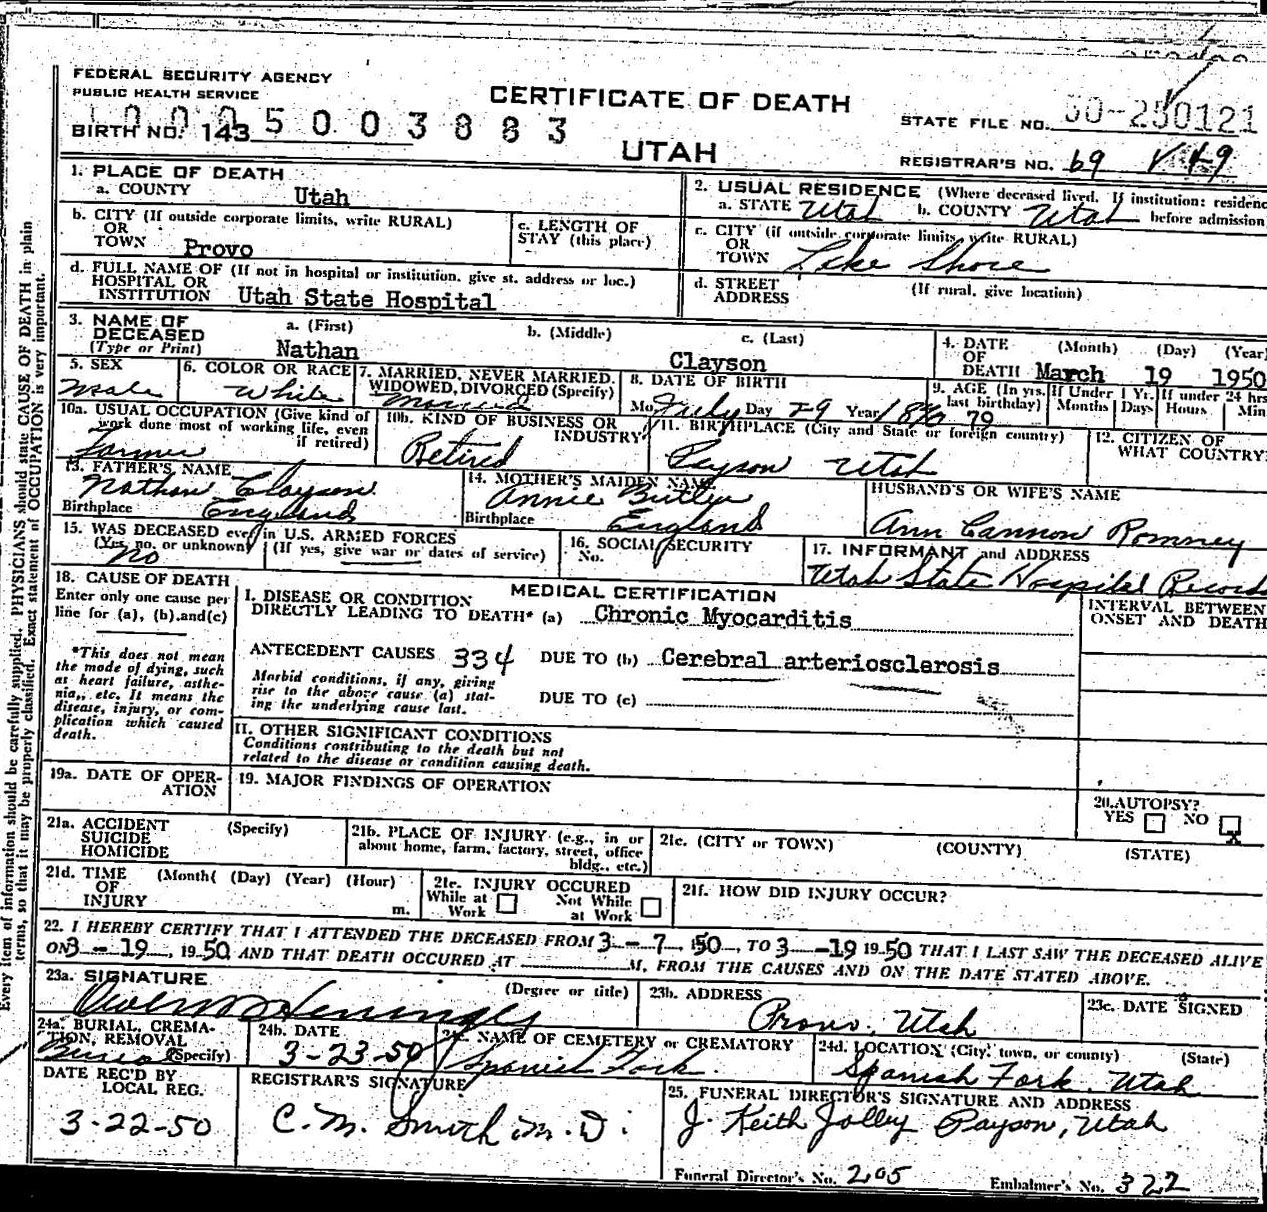 FEDERAL SECURITY AGENCY
PUBLIC HEALTH SERVICE
CERTIFICATE OF DEATH
UTAH
5 0 0 3 8 8 3
BIRTH NO. 143
STATE FILE NO. 50-250121
REGISTRAR'S NO. 69
1. PLACE OF DEATH
a. COUNTY Utah
b. CITY (If outside corporate limits, write RURAL)
OR
TOWN Provo
c. LENGTH OF
STAY (this place)
d. FULL NAME OF (If not in hospital or institution, give st. address or loc.)
HOSPITAL OR
INSTITUTION Utah State Hospital
2. USUAL RESIDENCE (Where deceased lived. If institution: residence
a. STATE Utah b. COUNTY Utah before admission
c. CITY (if outside corporate limits, write RURAL)
OR
TOWN Lake Shore
d. STREET (If rural, give location)
ADDRESS
3. NAME OF
DECEASED
(Type or Print)
a. (First) b. (Middle) c. (Last)
Nathan Clayson
4. DATE (Month) (Day) (Year)
OF
DEATH March 19 1950
5. SEX
Male
6. COLOR OR RACE
White
7. MARRIED, NEVER MARRIED,
WIDOWED, DIVORCED (Specify)
Married
8. DATE OF BIRTH
Mo. July Day 29 Year 1870
9. AGE (In yrs.
last birthday) 79
If Under 1 Yr.
Months Days
If under 24 hrs
Hours Min
10a. USUAL OCCUPATION (Give kind of
work done most of working life, even
if retired)
Farmer
10b. KIND OF BUSINESS OR
INDUSTRY
Retired
11. BIRTHPLACE (City and State or foreign country)
Payson Utah
12. CITIZEN OF
WHAT COUNTRY
13. FATHER'S NAME
Nathan Clayson
Birthplace England
14. MOTHER'S MAIDEN NAME
Annie Butler
Birthplace England
HUSBAND'S OR WIFE'S NAME
Ann Cannon Romney
15. WAS DECEASED ever in U.S. ARMED FORCES
(Yes, no, or unknown) (If yes, give war or dates of service)
No
16. SOCIAL SECURITY
No.
17. INFORMANT and ADDRESS
Utah State Hospital Records
18. CAUSE OF DEATH
Enter only one cause per
line for (a), (b).and(c)
*This does not mean
the mode of dying, such
as heart failure, asthe-
nia,, etc. It means the
disease, injury, or com-
plication which caused
death.
MEDICAL CERTIFICATION
I. DISEASE OR CONDITION
DIRECTLY LEADING TO DEATH* (a) Chronic Myocarditis
ANTECEDENT CAUSES 334 DUE TO (b) Cerebral arteriosclerosis
Morbid conditions, if any, giving
rise to the above cause (a) stat-
ing the underlying cause last.
DUE TO (c)
II. OTHER SIGNIFICANT CONDITIONS
Conditions contributing to the death but not
related to the disease or condition causing death.
INTERVAL BETWEEN
ONSET AND DEATH
19a. DATE OF OPER-
ATION
19. MAJOR FINDINGS OF OPERATION
20. AUTOPSY?
YES NO X
21a. ACCIDENT (Specify)
SUICIDE
HOMICIDE
21b. PLACE OF INJURY (e.g., in or
about home, farm, factory, street, office
bldg., etc.)
21c. (CITY or TOWN) (COUNTY) (STATE)
21d. TIME (Month( (Day) (Year) (Hour)
OF
INJURY m.
21e. INJURY OCCURED
While at Not While
Work at Work
21f. HOW DID INJURY OCCUR?
22. I HEREBY CERTIFY THAT I ATTENDED THE DECEASED FROM 3-7, 1950, TO 3-19 1950 THAT I LAST SAW THE DECEASED ALIVE
ON 3-19, 1950 AND THAT DEATH OCCURED AT M, FROM THE CAUSES AND ON THE DATE STATED ABOVE.
23a. SIGNATURE (Degree or title)
23b. ADDRESS
Provo, Utah
23c. DATE SIGNED
24a. BURIAL, CREMA-
TION, REMOVAL
(Specify)
Burial
24b. DATE
3-23-50
24c. NAME OF CEMETERY or CREMATORY
Spanish Fork
24d. LOCATION (City, town, or county) (State)
Spanish Fork, Utah
DATE REC'D BY
LOCAL REG.
3-22-50
REGISTRAR'S SIGNATURE
C. M. Smith M. D.
25. FUNERAL DIRECTOR'S SIGNATURE AND ADDRESS
J. Keith Jolley Payson, Utah
Funeral Director's No. 205 Embalmer's No. 322
Every item of information should be carefully supplied. PHYSICIANS should state CAUSE OF DEATH in plain
terms, so that it may be properly classified. Exact statement of OCCUPATION is very important.